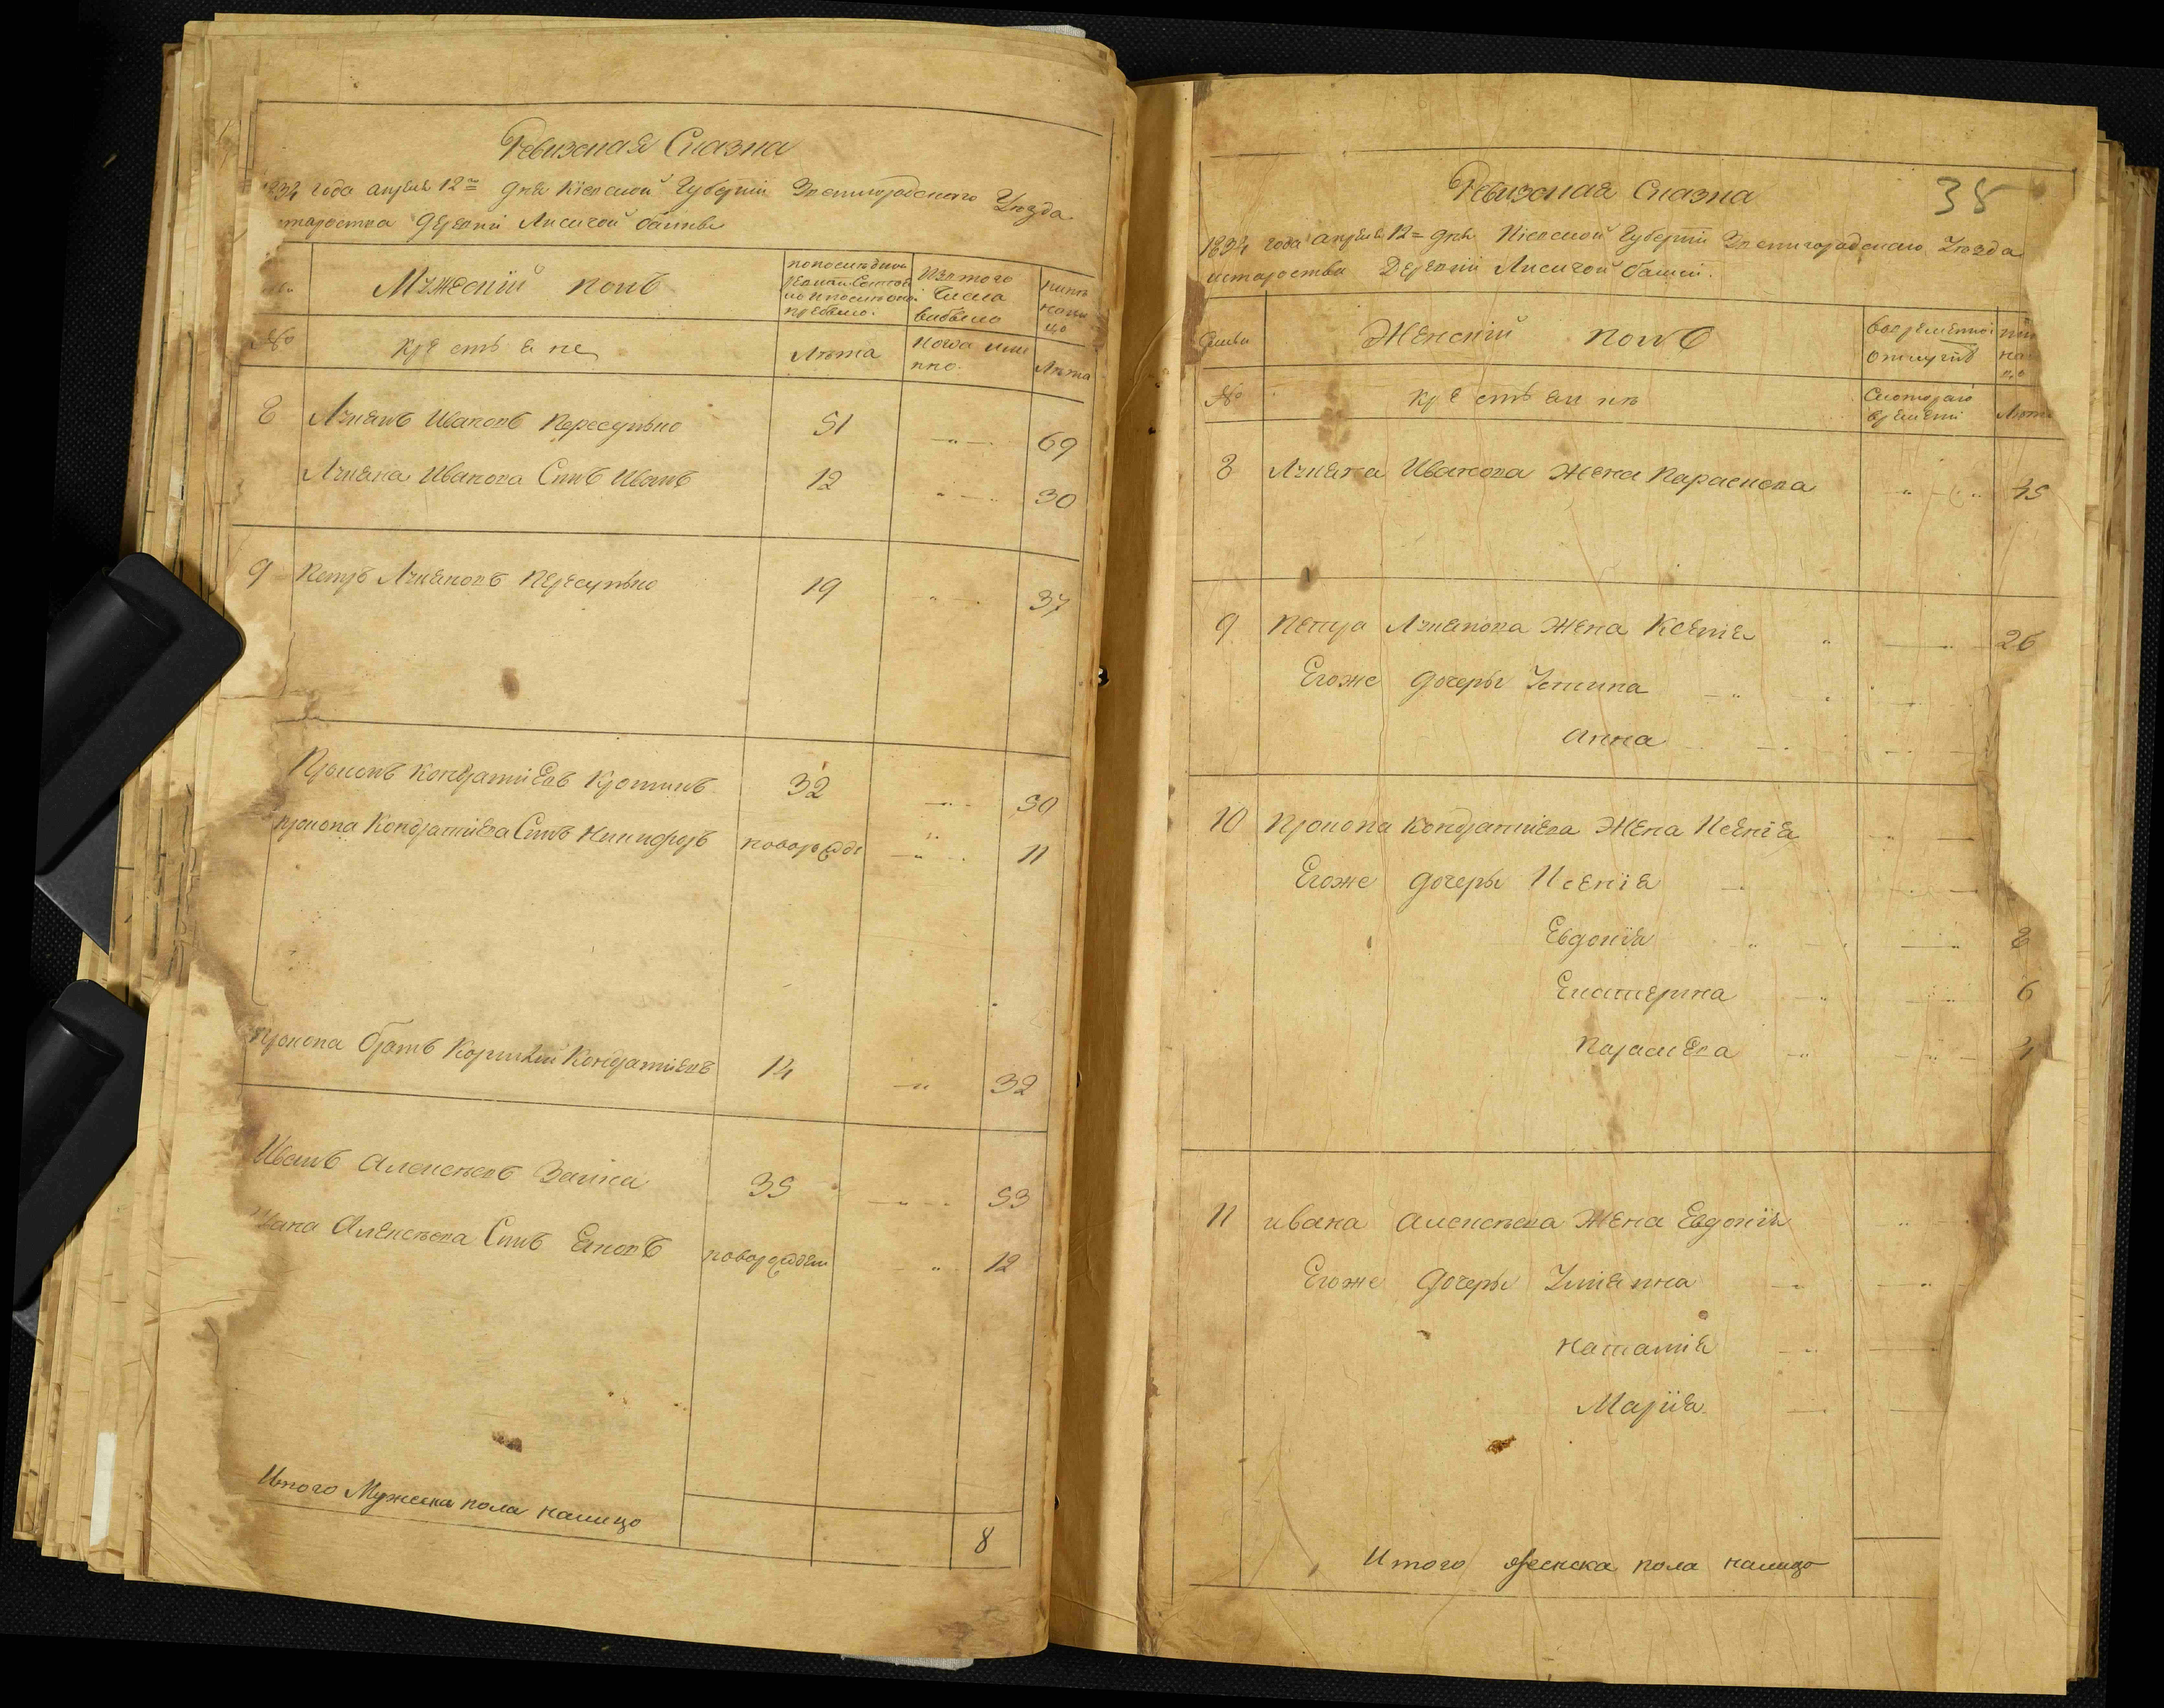 Ревизская Сказка
1834 года апреля 12го дня Кіевской Губерніи Звенигородского Уезда
староства деревни Лисичой балки
Мужескій полъ
по последней ревизіи состояло и после оной прибыло.
Изъ того числа выбыло
ныне на лицо
№
крестьяне
Лета
когда именно
Лета
8 Лукянъ Ивановъ Пересунько 51 69
Лукяна Иванова Сынъ Иванъ 12 30
9 Петръ Лукяновъ Пересунько 19 37
Прокопъ Кондратиевъ 32 50
Прокопа Кондратиева Сынъ Никифоръ новорожде 11
Прокопа братъ Корнилий Кондратиевъ 14 32
Иванъ Алексеевъ Заика 35 53
Ивана Алексеева Сынъ Яковъ новорожден 12
Итого Мужеска пола налицо 8
38
Ревизская Сказка
1834 года апреля 12 дня Кіевской Губерніи Звенигородского Уезда
староства Деревніи Лисичой балки.
Семьи
Женскій полъ
во временной отлучке
№
крестьянке
С которого времени
Лета
8 Лукяна Иванова жена Парасковя 45
9 Петра Лукянова Жена Ксенія 26
Егоже дочеры Устина
Анна
10 Прокопа Кондратиева Жена Ксенія
Егоже дочеры Ксенія
Евдокія 8
Екатерина 6
Парасева
11 ивана Алексеева Жена Евдокія
Егоже Дочеры Улиянна
Наталия
Марія
Итого женска пола налицо